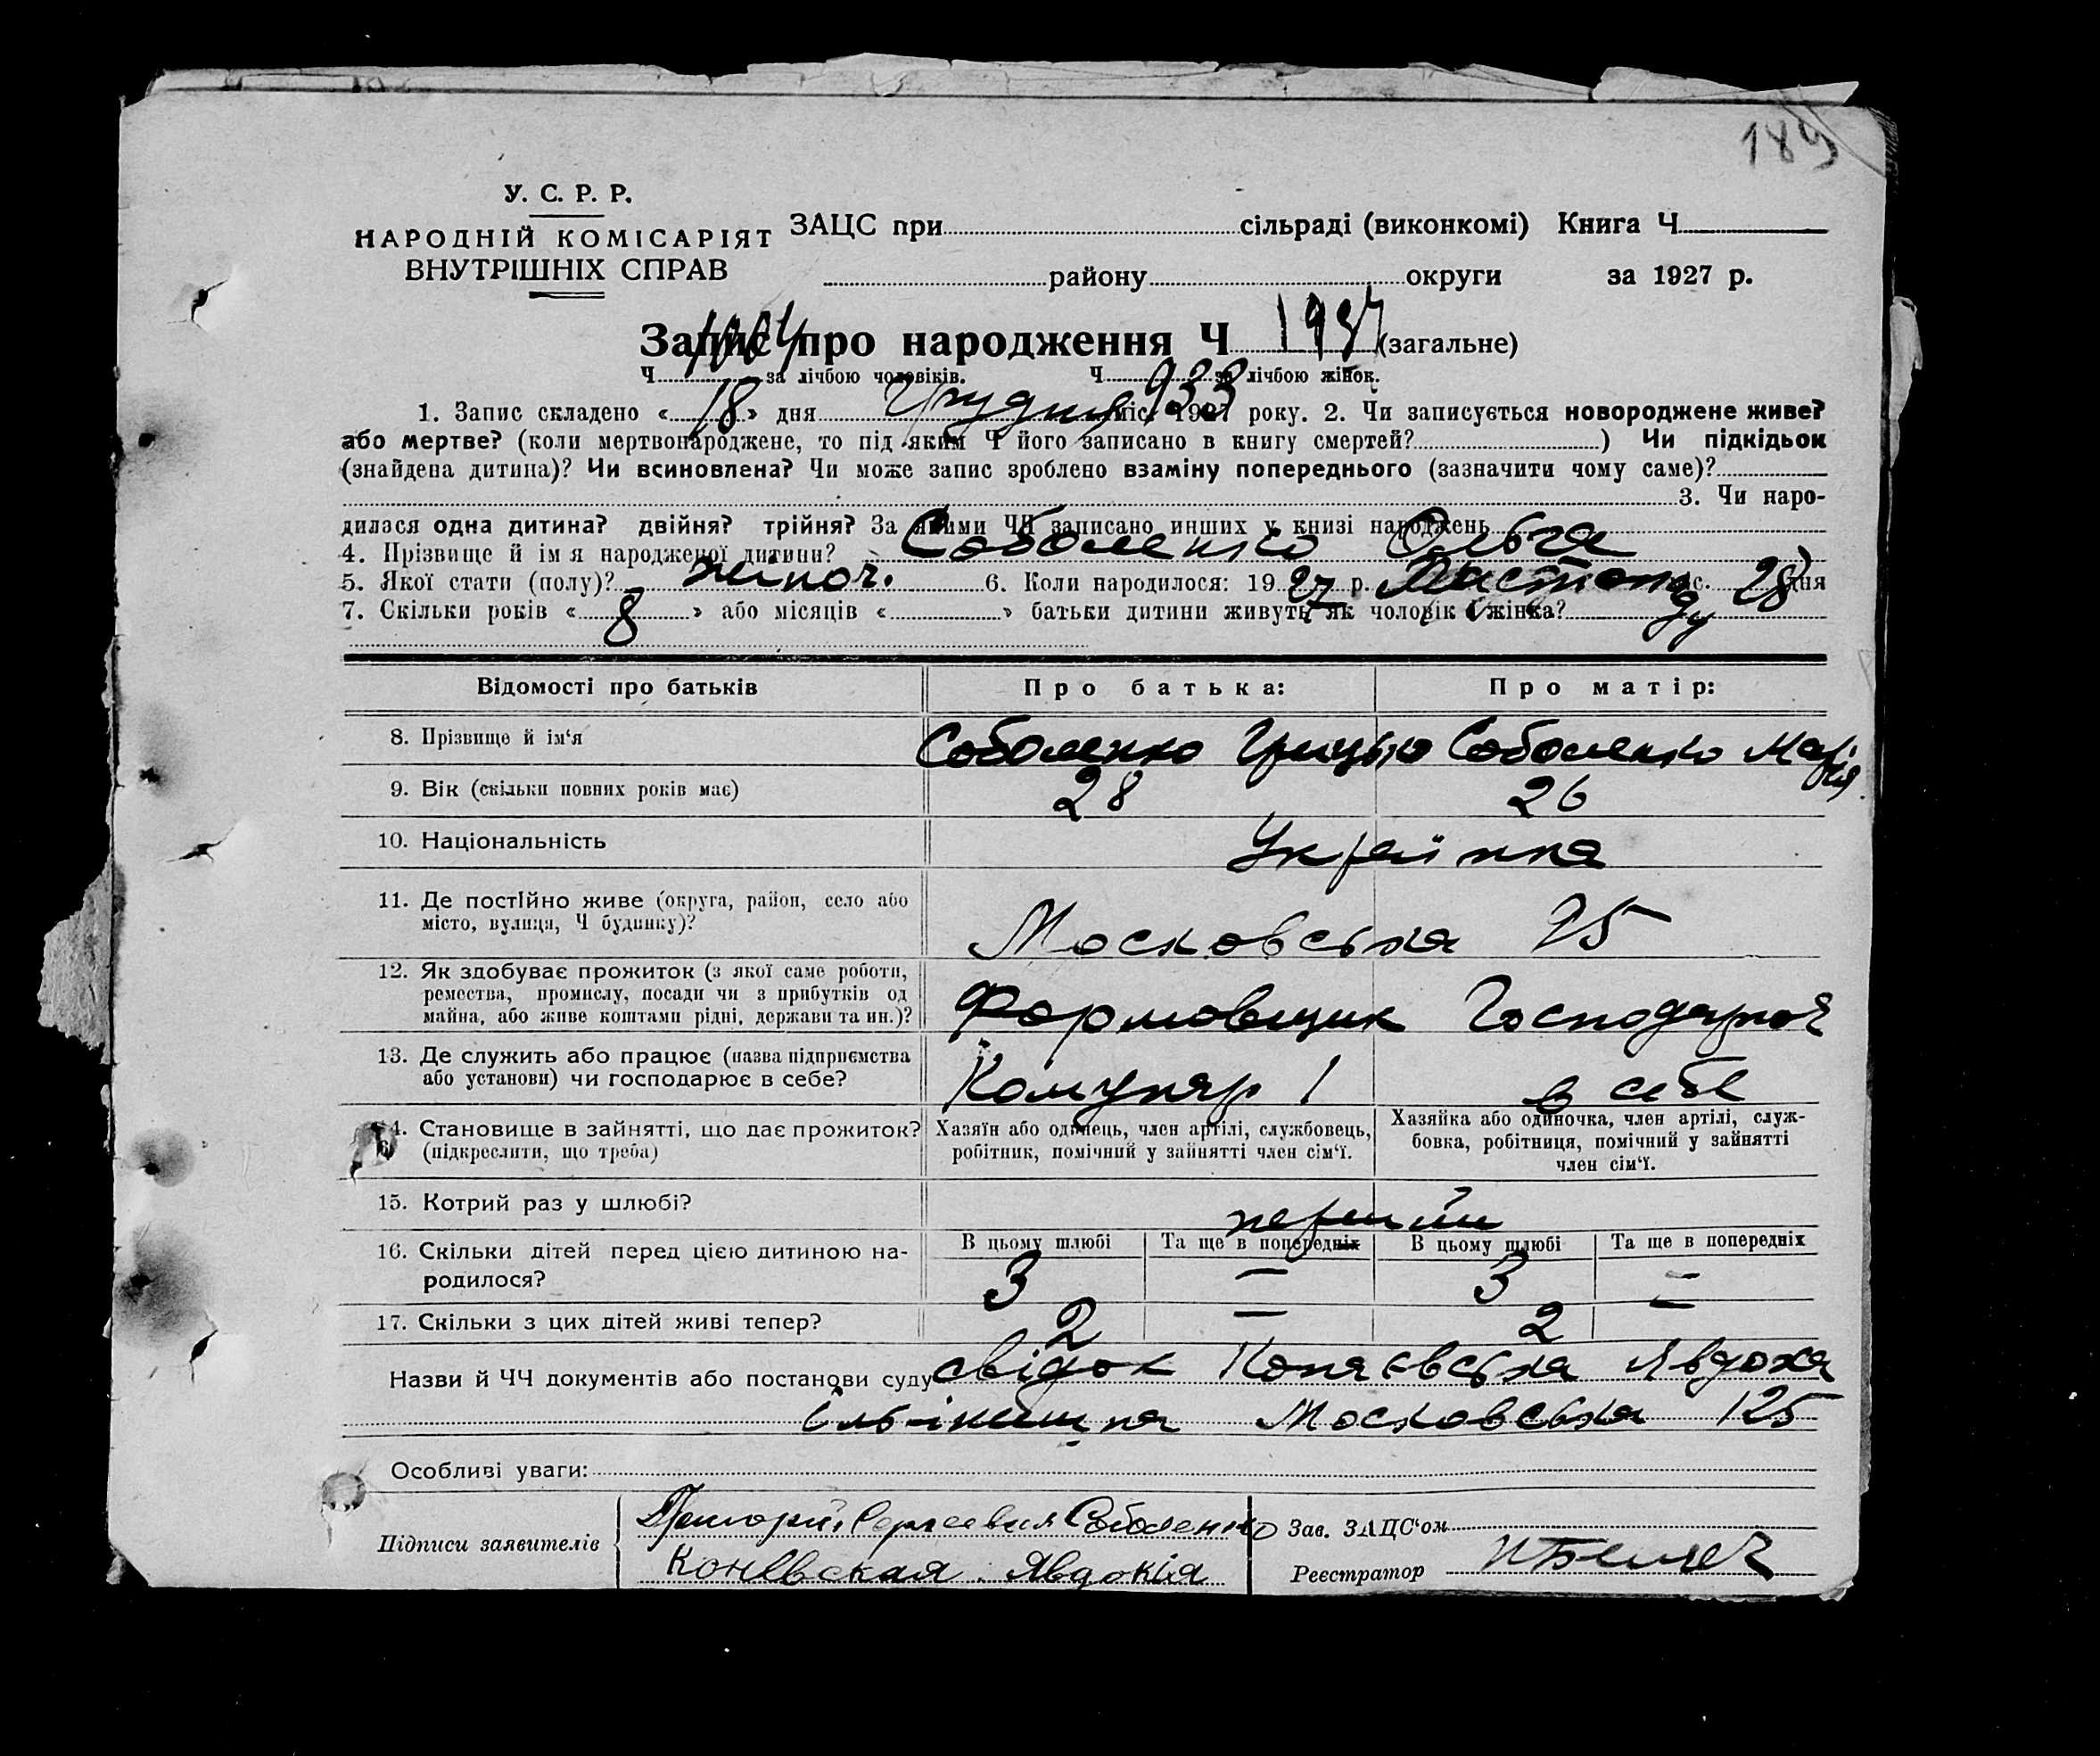 189
У. С. Р. Р.
НАРОДНІЙ КОМІСАРІЯТ
ВНУТРІШНІХ СПРАВ
ЗАЦС при сільраді (виконкомі) Книга Ч
району округи за 1927 р.
Запис про народження Ч 1937 (загальне)
Ч 1004 за лічбою чоловіків. Ч 933 за лічбою жінок.
1. Запис складено « 18 » дня Грудня міс. 1927 року. 2. Чи записується новороджене живе?
або мертве? (коли мертвонароджене, то під яким Ч його записано в книгу смертей? ) Чи підкідьок
(знайдена дитина)? Чи всиновлена? Чи може запис зроблено взаміну попереднього (зазначити чому саме)?
3. Чи наро-
дилася одна дитина? двійня? трійня? За якими ЧЧ записано инших у книзі народжень
4. Прізвище й ім я народженої дитини? Соболенко Ольга
5. Якої стати (полу)? жіноч. 6. Коли народилося: 19 27 р. Листопаду міс. 28 дня
7. Скільки років « 8 » або місяців « » батьки дитини живуть як чоловік і жінка?
Відомості про батьків Про батька: Про матір:
8. Прізвище й ім'я Соболенко Грицько Соболенко Марія
9. Вік (скільки повних років має) 28 26
10. Національність Українка
11. Де постійно живе (округа, район, село або
місто, вулиця, Ч будинку)? Московська 95
12. Як здобуває прожиток (з якої саме роботи,
ремества, промислу, посади чи з прибутків од
майна, або живе коштами рідні, держави та ин.)? Формовщик Господарює
13. Де служить або працює (назва підприємства
або установи) чи господарює в себе? Комунар 1 в себе
14. Становище в зайнятті, що дає прожиток?
(підкреслити, що треба)
Хазяїн або одинець, член артілі, службовець,
робітник, помічний у зайнятті член сім'ї.
Хазяйка або одиночка, член артілі, служ-
бовка, робітниця, помічний у зайнятті
член сім'ї.
15. Котрий раз у шлюбі? перший
16. Скільки дітей перед цією дитиною на-
родилося?
В цьому шлюбі Та ще в попередніх В цьому шлюбі Та ще в попередніх
3 — 3 —
17. Скільки з цих дітей живі тепер? 2 — 2 —
Назви й ЧЧ документів або постанови суду свідок Явдоха
Московська 125
Особливі уваги:
Підписи заявителів
Григорий Соболенко
Явдокія
Зав. ЗАЦС'ом
Реєстратор